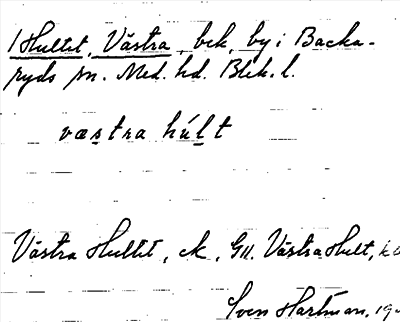 1 Hultet, Västra, bek, by i Backa-
ryds sn. Med. hd. Blek. l.
væstra húlt
Västra Hultet, ek, Gll. Västra Hult,
Sven Hartman, 19